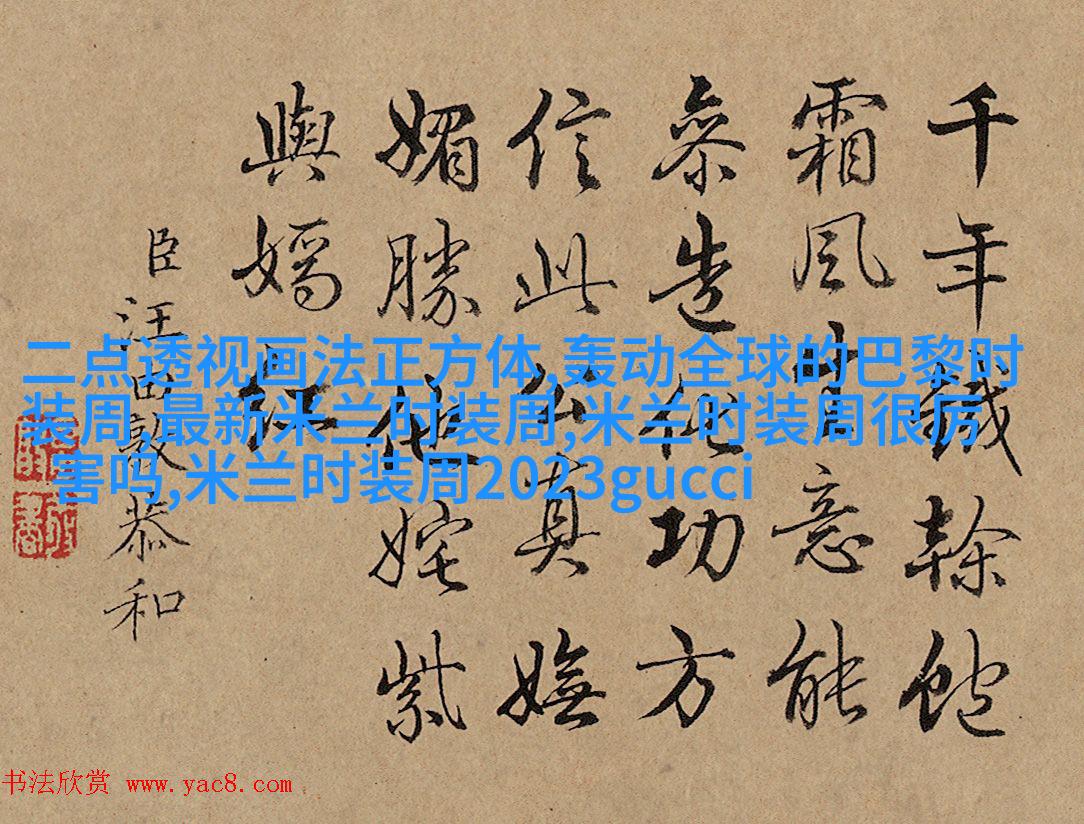 千年鐵榦飽
霜風意能
參造化功方
信此公真嫵
媚勝他姹紫
與嫣紅
臣汪由敦恭和
二点透视画法正方体,轰动全球的巴黎时
装周,最新米兰时装周,米兰时装周很厉
害吗,米兰时装周2023gucci
书法欣赏 www.yac8.com